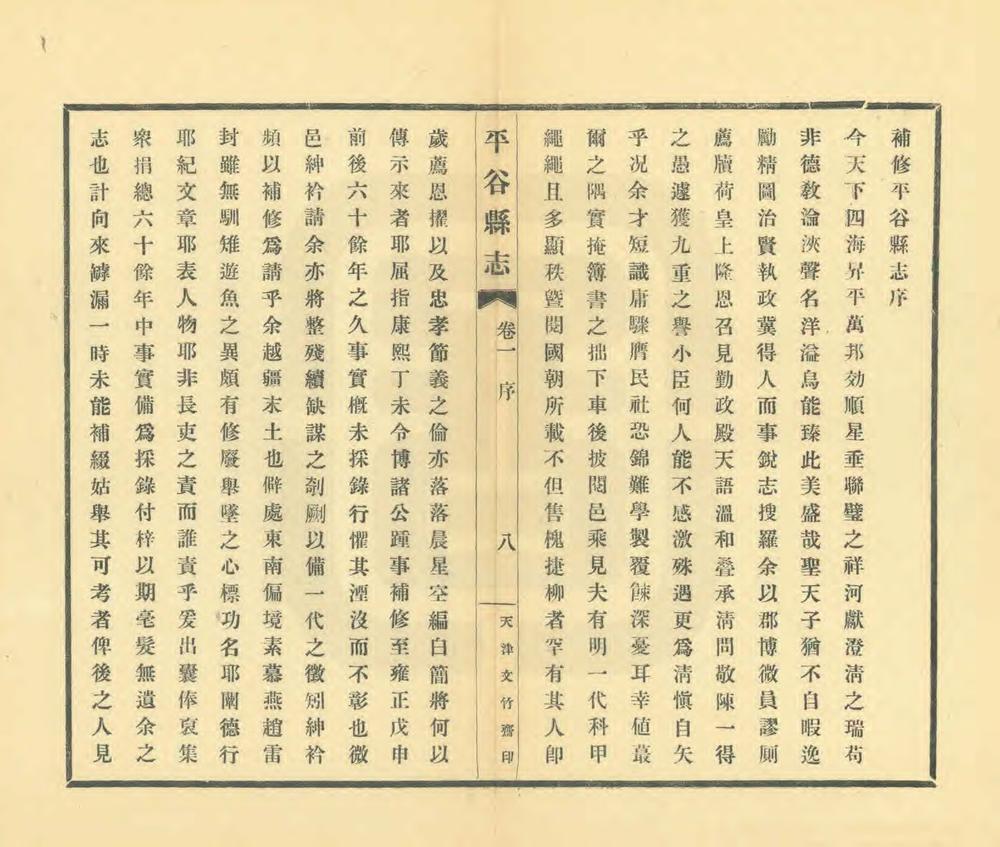 補修平谷縣志序
今天下四海昇平萬邦効順星垂聯璧之祥河獻澄淸之瑞苟
非德敎淪浹聲名洋溢烏能臻此美盛哉聖天子猶不自暇逸
勵精圖治賢執政冀得人而事銳志搜羅余以郡博微員謬厠
薦牘荷皇上隆恩召見勤政殿天語溫和疊承淸問敬陳一得
之愚遽獲九重之譽小臣何人能不感激殊遇更爲淸愼自矢
乎况余才短識庸驟膺民社恐錦難學製覆餗深憂耳幸値蕞
爾之隅實掩簿書之拙下車後披閱邑乘見夫有明一代科甲
繩繩且多顯秩曁閱國朝所載不但售槐捷柳者罕有其人卽
平谷縣志
卷一 序
八
天津文竹齋印
歲薦恩擢以及忠孝節義之倫亦落落晨星空編白簡將何以
傳示來者耶屈指康熙丁未令博諸公踵事補修至雍正戊申
前後六十餘年之久事實槪未採錄行懼其湮沒而不彰也微
邑紳衿請余亦將整殘續缺謀之剞劂以備一代之徵矧紳衿
頻以補修爲請乎余越疆末土也僻處東南偏境素慕燕趙雷
封雖無馴雉遊魚之異頗有修廢舉墜之心標功名耶闡德行
耶紀文章耶表人物耶非長吏之責而誰責乎爰出囊俸裒集
衆捐總六十餘年中事實備爲採錄付梓以期毫髮無遺余之
志也計向來罅漏一時未能補綴姑舉其可考者俾後之人見